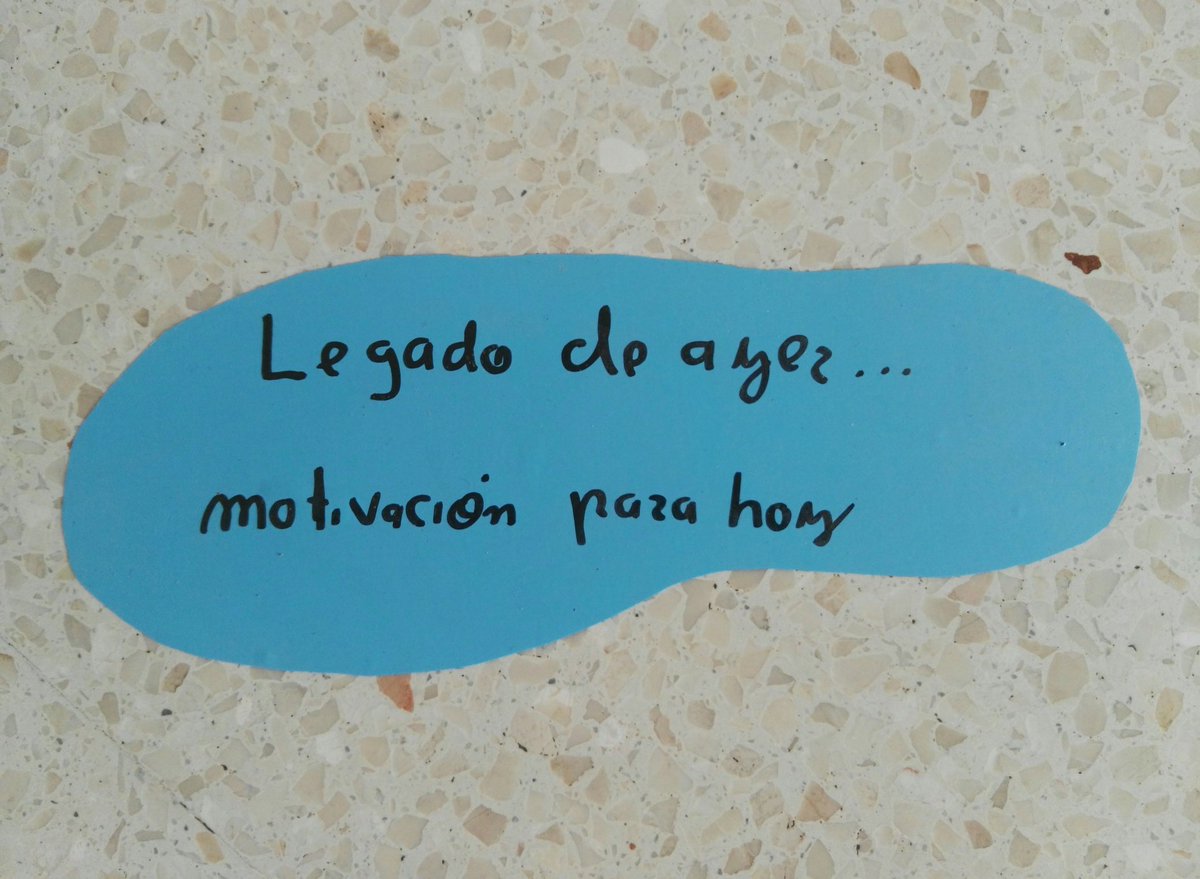 Legado de ayer...
motivación para hoy